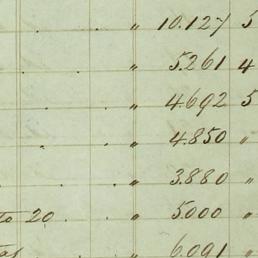 " 10.127 5
" 5.261 4
" 4.692 5
" 4.850 "
" 3.880 "
To 20 . " 5.000 "
" 6.091 "